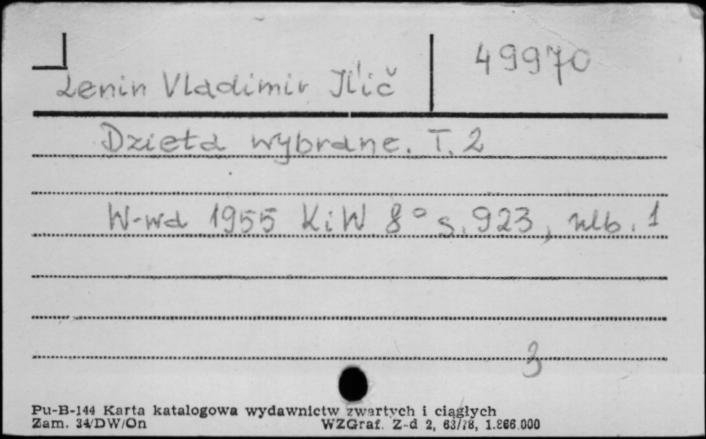 Lenin Vladimir Il'ič 49970
Dzieła wybrane. T. 2
W-wa 1955 KiW 8° s. 923, nlb. 1
3
Pu-B-144 Karta katalogowa wydawnictw zwartych i ciągłych
Zam. 34/DW/On WZGraf. Z-d 2, 63/78, 1.866.000